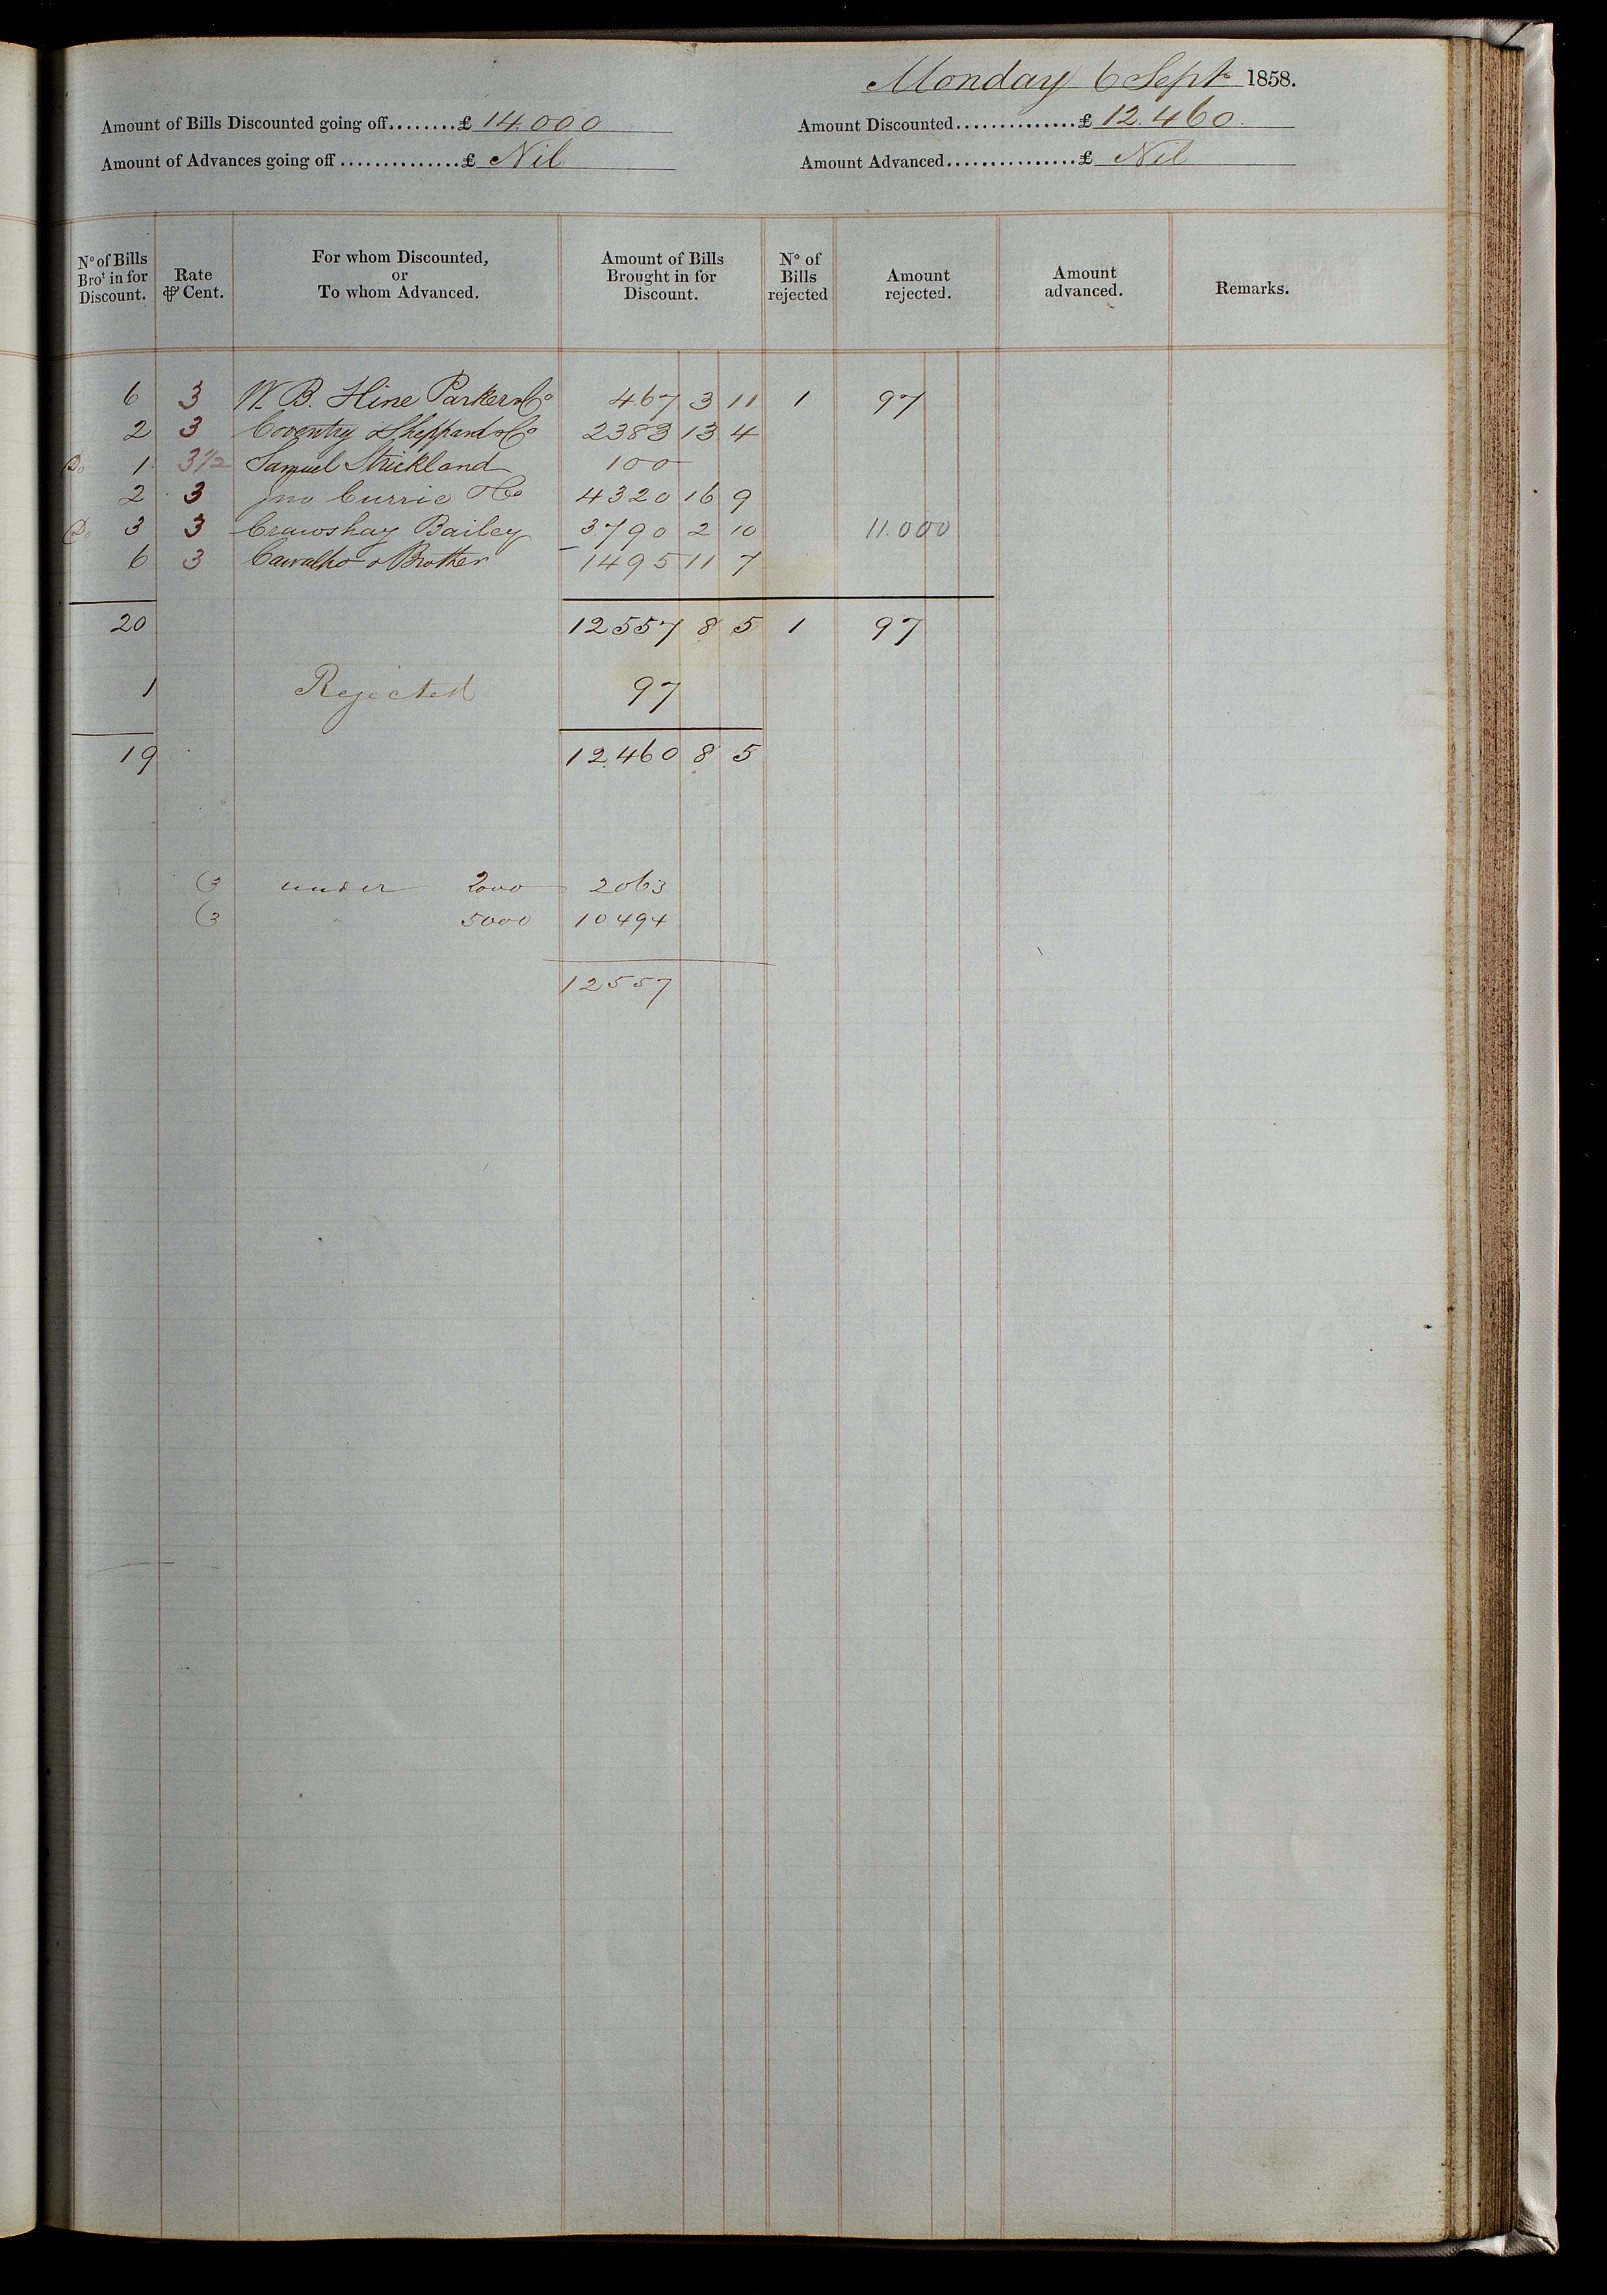 Monday 6 Sept 1858.
Amount of Bills Discounted going off........£ 14.000
Amount Discounted..............£ 12.460
Amount of Advances going off..............£ Nil
Amount Advanced...............£ Nil
No of Bills Brot in for Discount. Rate ⅌ Cent. For whom Discounted, or To whom Advanced. Amount of Bills Brought in for Discount. No of Bills rejected Amount rejected. Amount advanced. Remarks.
6 3 W. B. Hine Parker & Co 467 3 11 1 97
2 3 Coventry Sheppard & Co 2383 13 4
Do 1 3½ Samuel Strickland 100
2 3 Jno Currie & Co 4320 16 9
Do 3 3 Crawshay Bailey 3790 2 10 11.000
6 3 Carvalho & Brother 1495 11 7
20 12557 8 5 1 97
1 Rejected 97
19 12.460 8 5
3 under 2000 2063
3 " 5000 10494
12557